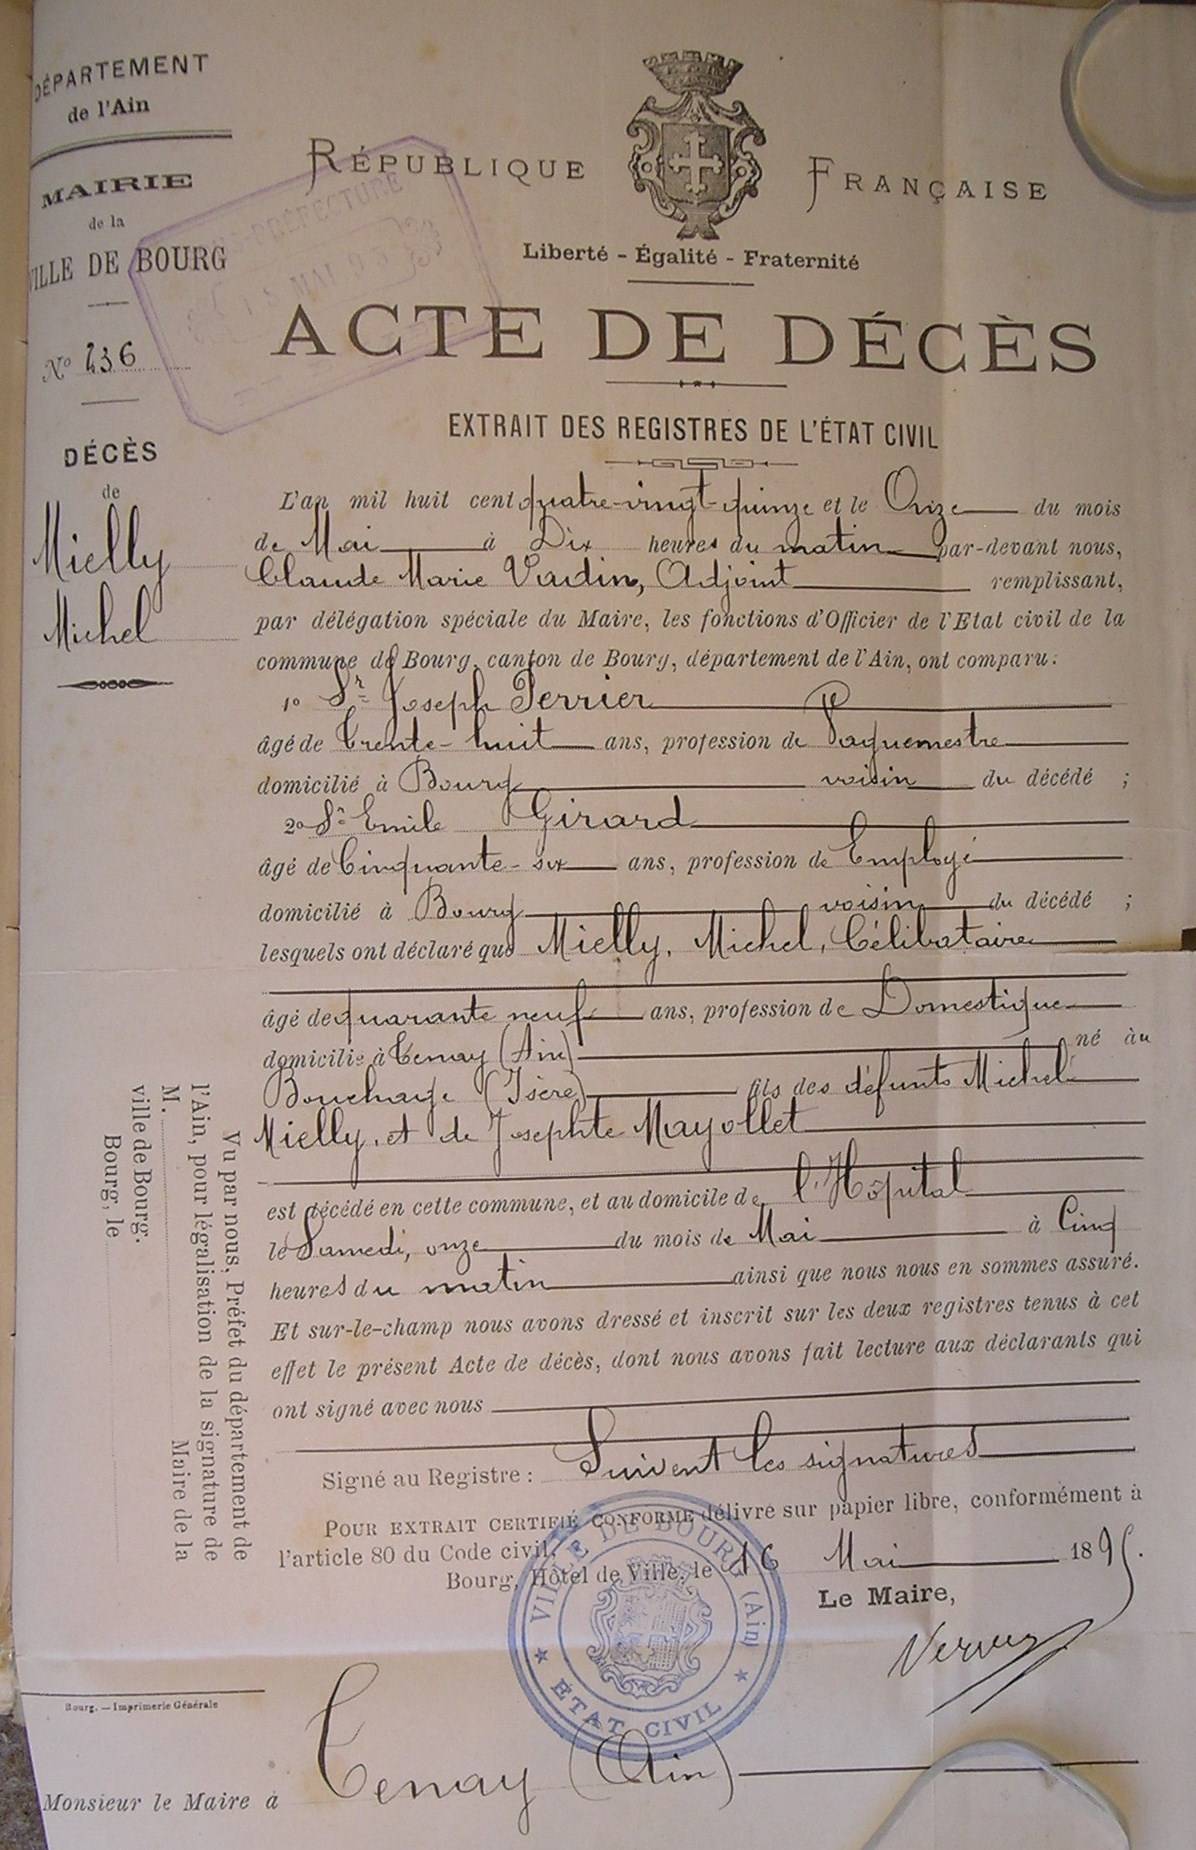 DÉPARTEMENT
de l'Ain
MAIRIE
de la
VILLE DE BOURG
N° 236
DÉCÈS
de
Mielly
Michel
RÉPUBLIQUE FRANÇAISE
Liberté - Égalité - Fraternité
ACTE DE DÉCÈS
EXTRAIT DES REGISTRES DE L'ÉTAT CIVIL
L'an mil huit cent quatre-vingt-quinze et le Onze du mois
de Mai à Dix heures du matin par-devant nous,
Claude Marie Verdin, Adjoint remplissant,
par délégation spéciale du Maire, les fonctions d'Officier de l'Etat civil de la
commune de Bourg, canton de Bourg, département de l'Ain, ont comparu:
1° Sr Joseph Perrier
âgé de Trente-huit ans, profession de Vaguemestre
domicilié à Bourg voisin du décédé ;
2° Sr Emile Girard
âgé de Cinquante-six ans, profession de Employé
domicilié à Bourg voisin du décédé ;
lesquels ont déclaré que Mielly, Michel, Célibataire
âgé de quarante neuf ans, profession de Domestique
domicilié à Tenay (Ain) né au
Bouchage (Isère) fils des défunts Michel
Mielly, et de Josephte Mayollet
est décédé en cette commune, et au domicile de l'Hôpital
le Samedi, onze du mois de Mai à Cinq
heures du matin ainsi que nous nous en sommes assuré.
Et sur-le-champ nous avons dressé et inscrit sur les deux registres tenus à cet
effet le présent Acte de décès, dont nous avons fait lecture aux déclarants qui
ont signé avec nous
Signé au Registre : Suivent les signatures
POUR EXTRAIT CERTIFIÉ CONFORME délivré sur papier libre, conformément à
l'article 80 du Code civil.
Bourg, Hôtel de Ville, le 16 Mai 1895.
Le Maire,
VILLE DE BOURG (Ain)
ÉTAT CIVIL
Vu par nous, Préfet du département de
l'Ain, pour légalisation de la signature de
M. Maire de la
ville de Bourg.
Bourg, le
Bourg. — Imprimerie Générale
Monsieur le Maire à Tenay (Ain)